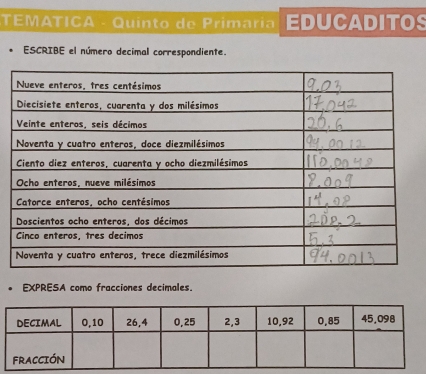 TEMÁTICA - Quinto de Primaria EDUCADITOS
• ESCRIBE el número decimal correspondiente.
Nueve enteros, tres centésimos 9.03
Diecisiete enteros, cuarenta y dos milésimos 17.042
Veinte enteros, seis décimos 20.6
Noventa y cuatro enteros, doce diezmilésimos 94.0012
Ciento diez enteros, cuarenta y ocho diezmilésimos 110.0048
Ocho enteros, nueve milésimos 8.009
Catorce enteros, ocho centésimos 14.08
Doscientos ocho enteros, dos décimos 208.2
Cinco enteros, tres decimos 5.3
Noventa y cuatro enteros, trece diezmilésimos 94.0013
• EXPRESA como fracciones decimales.
DECIMAL 0,10 26,4 0,25 2,3 10,92 0,85 45,098
FRACCIÓN